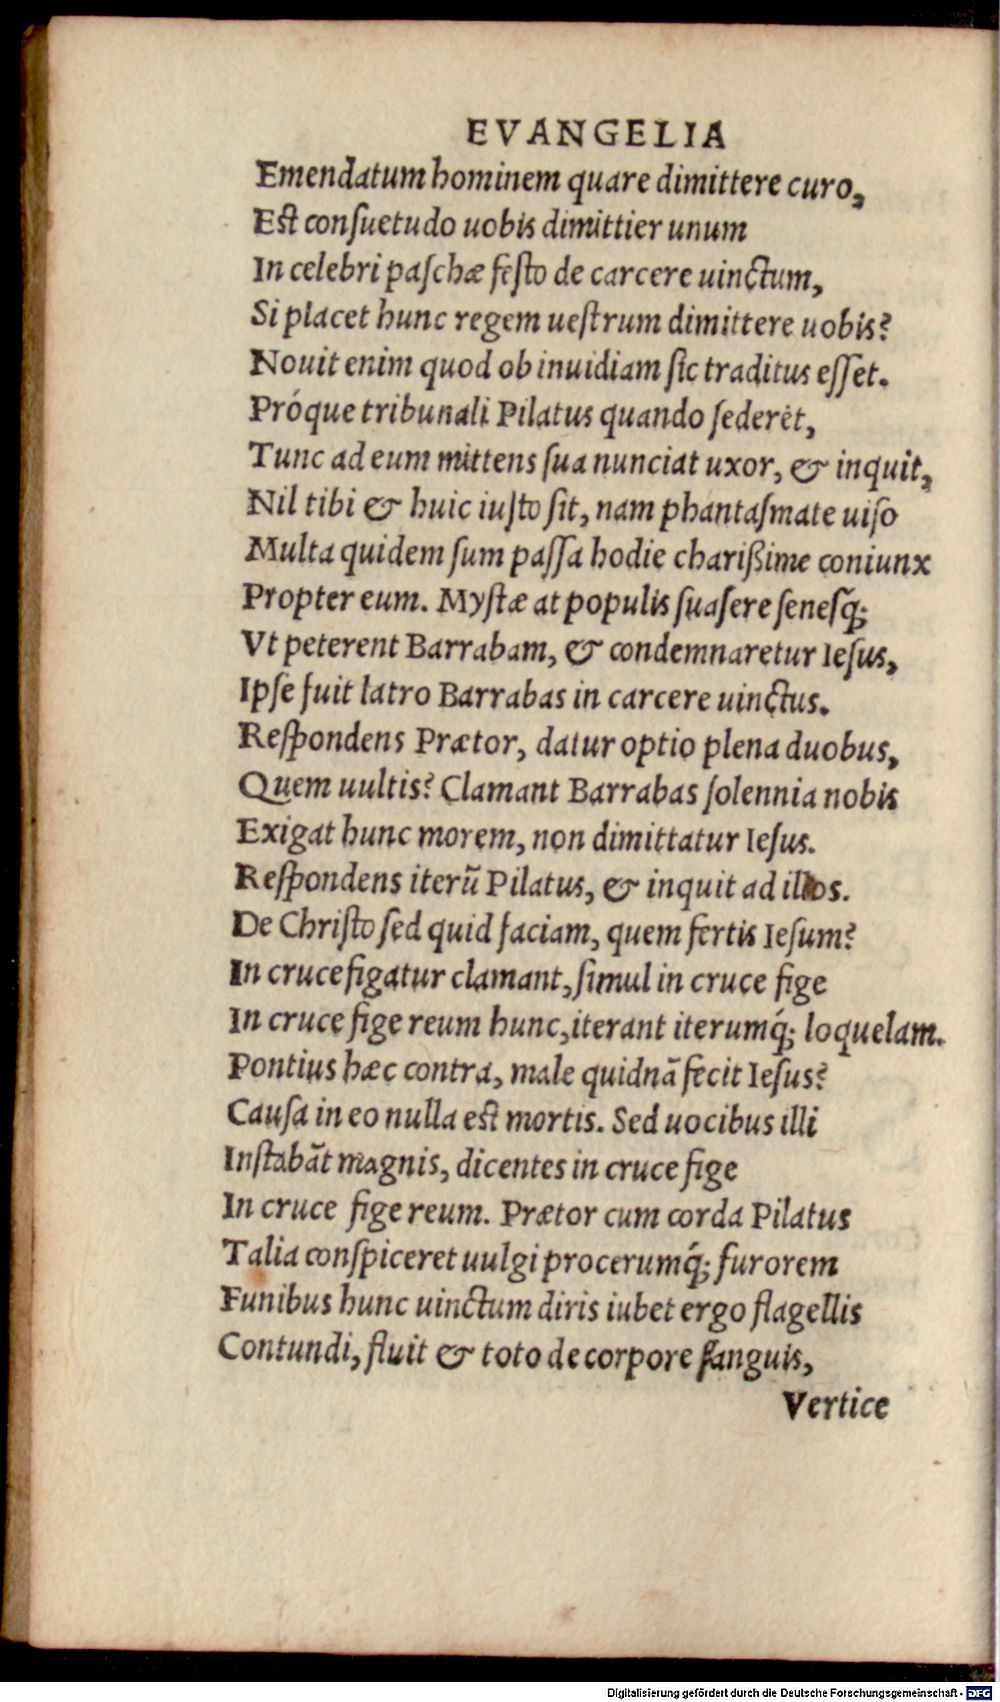 EVANGELIA
Emendatum hominem quare dimittere curo,
Est consuetudo uobis dimittier unum
In celebri paschæ festo de carcere uinctum,
Si placet hunc regem uestrum dimittere uobis?
Nouit enim quod ob inuidiam sic traditus esset.
Próque tribunali Pilatus quando sederet,
Tunc ad eum mittens sua nunciat uxor, & inquit,
Nil tibi & huic iusto sit, nam phantasmate uiso
Multa quidem sum passa hodie charißime coniunx
Propter eum. Mystæ at populis suasere senesq;
Vt peterent Barrabam, & condemnaretur Iesus,
Ipse fuit latro Barrabas in carcere uinctus.
Respondens Prætor, datur optio plena duobus,
Quem uultis? Clamant Barrabas solennia nobis
Exigat hunc morem, non dimittatur Iesus.
Respondens iterū Pilatus, & inquit ad illos.
De Christo sed quid faciam, quem fertis Iesum?
In cruce figatur clamant, simul in cruce fige
In cruce fige reum hunc, iterant iterumq́; loquelam.
Pontius hæc contra, male quidnā fecit Iesus?
Causa in eo nulla est mortis. Sed uocibus illi
Instabāt magnis, dicentes in cruce fige
In cruce fige reum. Prætor cum corda Pilatus
Talia conspiceret uulgi procerumq́; furorem
Funibus hunc uinctum diris iubet ergo flagellis
Contundi, fluit & toto de corpore sanguis,
Vertice
Digitalisierung gefördert durch die Deutsche Forschungsgemeinschaft - DFG